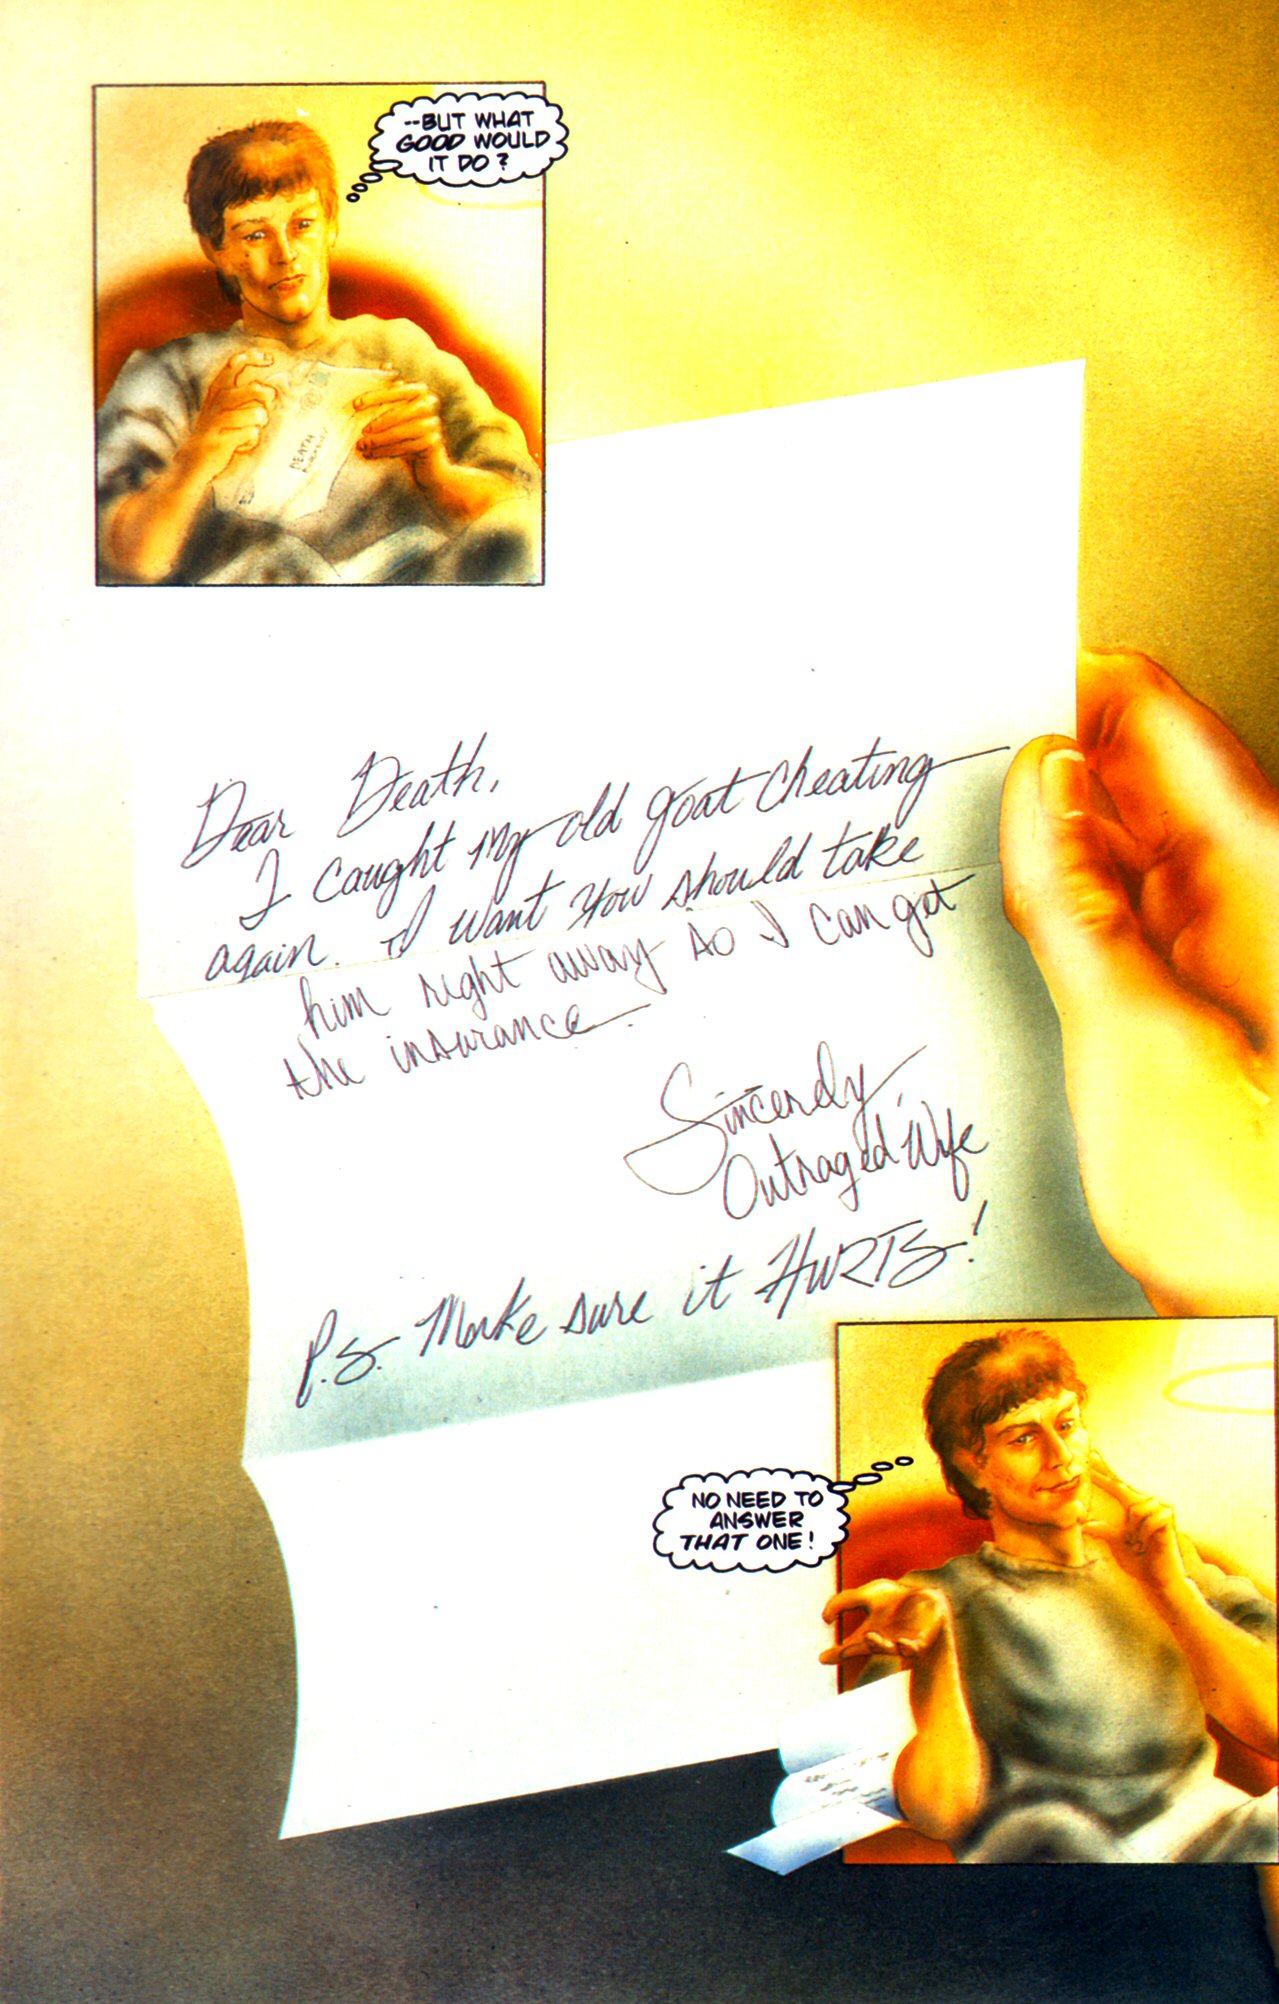 --BUT WHAT
GOOD WOULD
IT DO?
DEATH
Dear Death,
I caught my old goat cheating
again. I want you should take
him right away so I can get
the insurance.
Sincerely,
Outraged Wife
P.S. Make sure it HURTS!
NO NEED TO
ANSWER
THAT ONE!